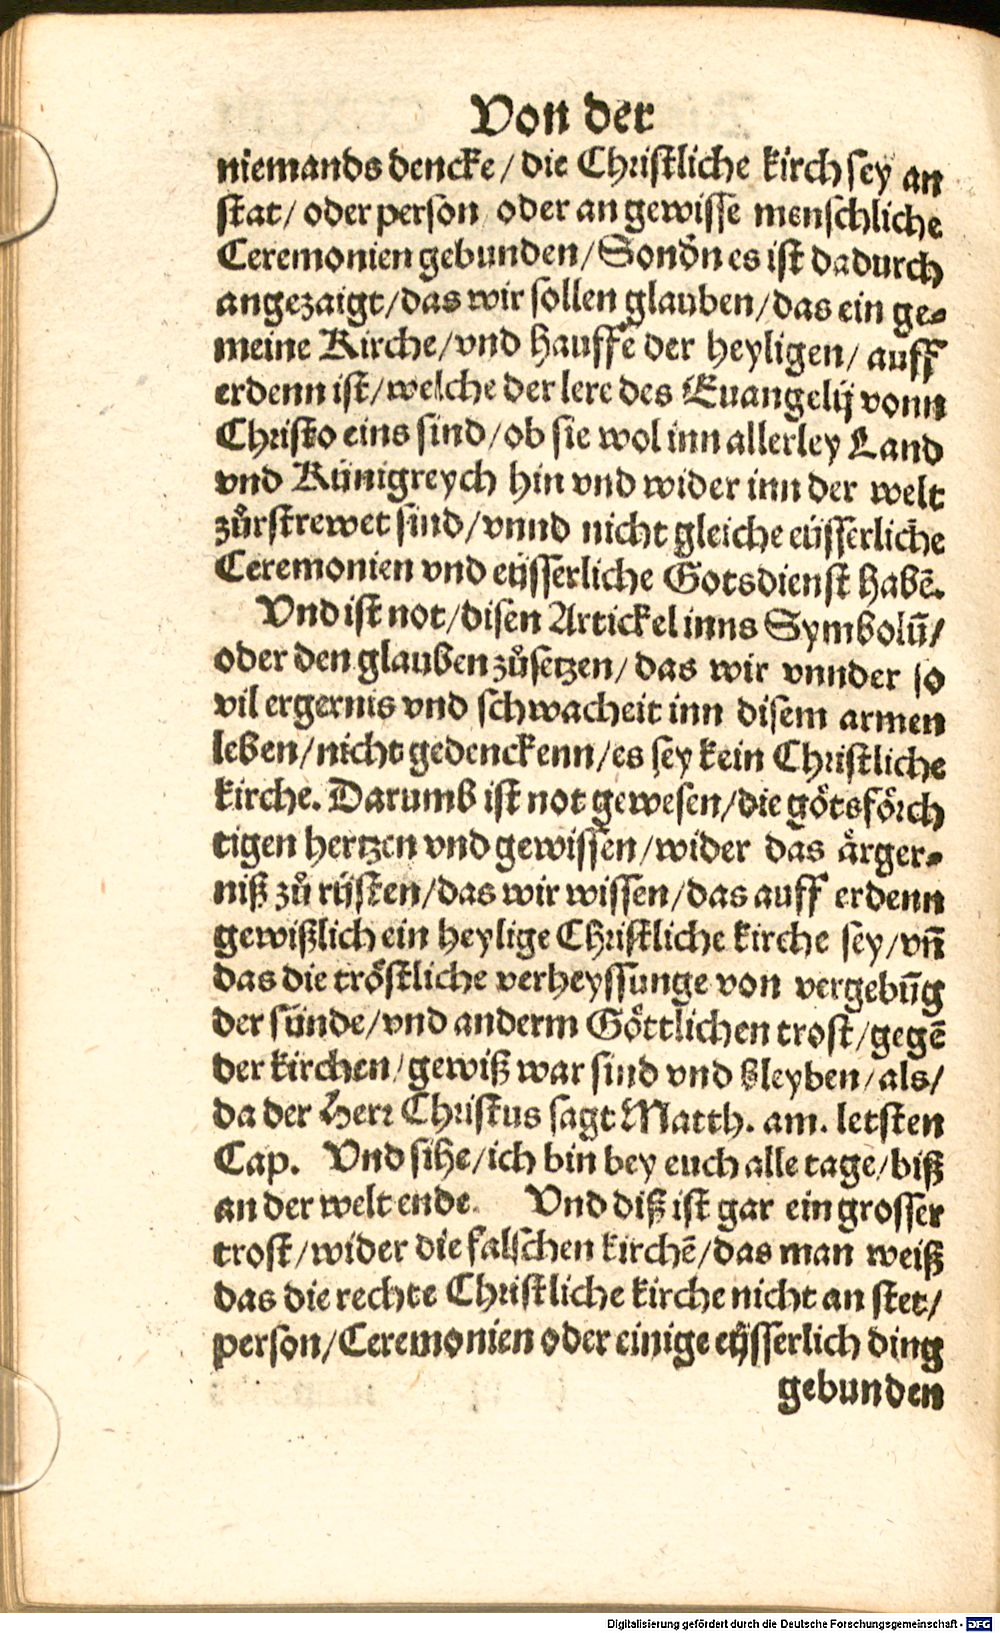 Von der
niemands dencke / die Christliche kirch sey an
stat / oder person oder an gewisse menschliche
Ceremonien gebunden / Sonðn es ist dadurch
angezaigt / das wir sollen glauben / das ein ge⸗
meine Kirche / vnd hauffe der heyligen / auff
erdenn ist / welche der lere des Euangelij vonn
Christo eins sind / ob sie wol inn allerley Land
vnd Künigreych hin vnd wider inn der welt
zůrstrewet sind / vnnd nicht gleiche eüsserliche
Ceremonien vnd eüsserliche Gotsdienst habē.
Vnd ist not / disen Artickel inns Symbolū /
oder den glauben zůsetzen / das wir vnnder so
vil ergernis vnd schwacheit inn disem armen
leben / nicht gedenckenn / es sey kein Christliche
kirche. Darumb ist not gewesen / die götsförch
tigen hertzen vnd gewissen / wider das ärger⸗
niß zů rüsten / das wir wissen / das auff erdenn
gewißlich ein heylige Christliche kirche sey / vn̄
das die tröstliche verheyssunge von vergebūg
der sünde / vnd anderm Göttlichen trost / gegē
der kirchen / gewiß war sind vnd bleyben / als /
da der Herr Christus sagt Matth. am. letsten
Cap. Vnd sihe / ich bin bey euch alle tage / biß
an der welt ende. Vnd diß ist gar ein grosser
trost / wider die falschen kirchē / das man weiß
das die rechte Christliche kirche nicht an stet /
person / Ceremonien oder einige eüsserlich ding
gebunden
Digitalisierung gefördert durch die Deutsche Forschungsgemeinschaft - DFG